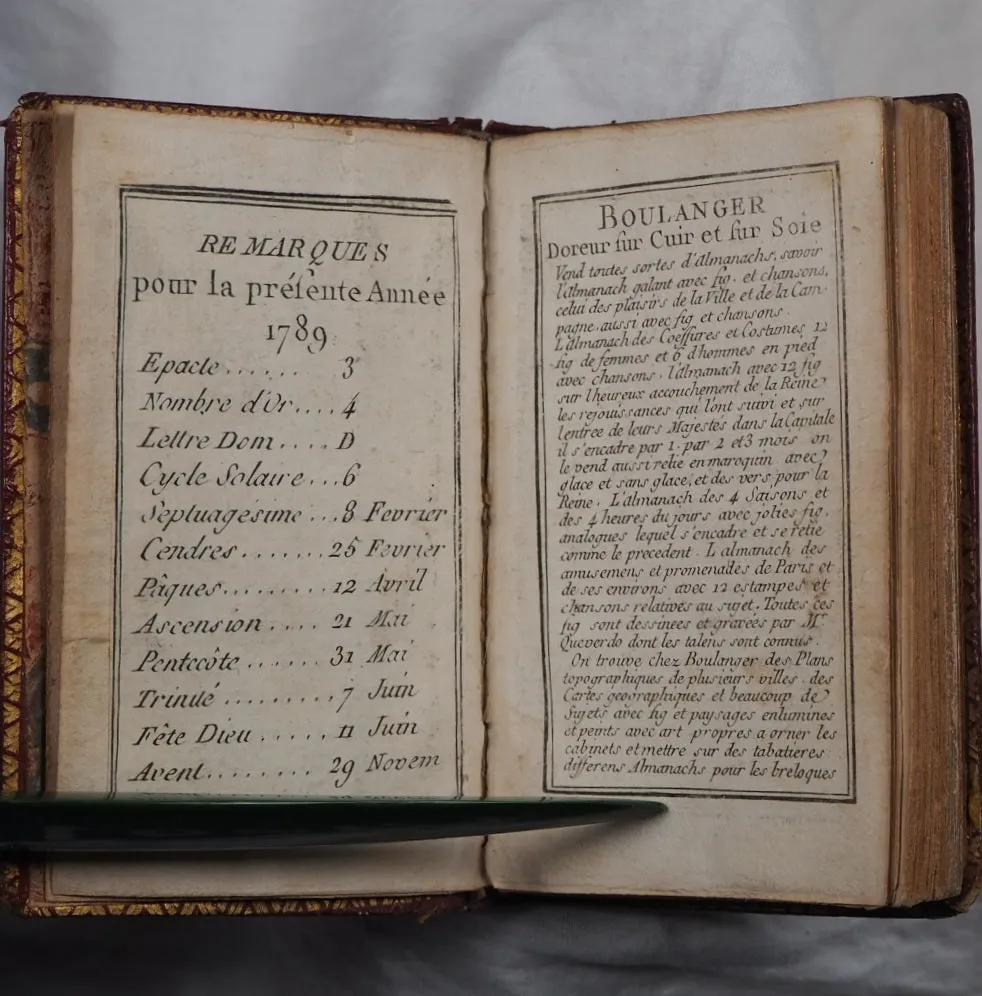 REMARQUES
pour la préſente Année
1789.
Epacte...... 3
Nombre d'Or.... 4
Lettre Dom.... D
Cycle Solaire... 6
Septuagésime ... 8 Fevrier
Cendres....... 25 Fevrier
Pâques......... 12 Avril
Ascension .... 21 Mai
Pentecôte ...... 31 Mai
Trinité......... 7 Juin
Fête Dieu ..... 11 Juin
Avent........ 29 Novem
BOULANGER
Doreur ſur Cuir et ſur Soie
Vend toutes sortes d'Almanachs, savoir
l'Almanach galant avec fig. et chansons,
celui des plaisirs de la Ville et de la Cam-
pagne, aussi avec fig et chansons.
L'almanach des Coeffures et Costumes 12
fig de femmes et 6 d'hommes en pied
avec chansons, l'almanach avec 12 fig
sur l'heureux accouchement de la Reine
les rejouissances qui l'ont suivi et sur
l'entrée de leurs Majestés dans la Capitale
il s'encadre par 1. par 2 et 3 mois on
le vend aussi relie en maroquin avec
glace et sans glace, et des vers pour la
Reine. L'almanach des 4 Saisons et
des 4 heures du jours avec jolies fig.
analogues lequel s'encadre et se relie
comme le precedent. L almanach des
amusemens et promenades de Paris et
de ses environs avec 12 estampes et
chansons relatives au sujet. Toutes ces
fig sont dessinées et gravées par Mr.
Queverdo dont les talens sont connus.
On trouve chez Boulanger des Plans
topographiques de plusieurs villes, des
Cartes geographiques et beaucoup de
Sujets avec fig et paysages enlumines
et peints avec art propres a orner les
cabinets et mettre sur des tabatieres
differens Almanachs pour les breloques